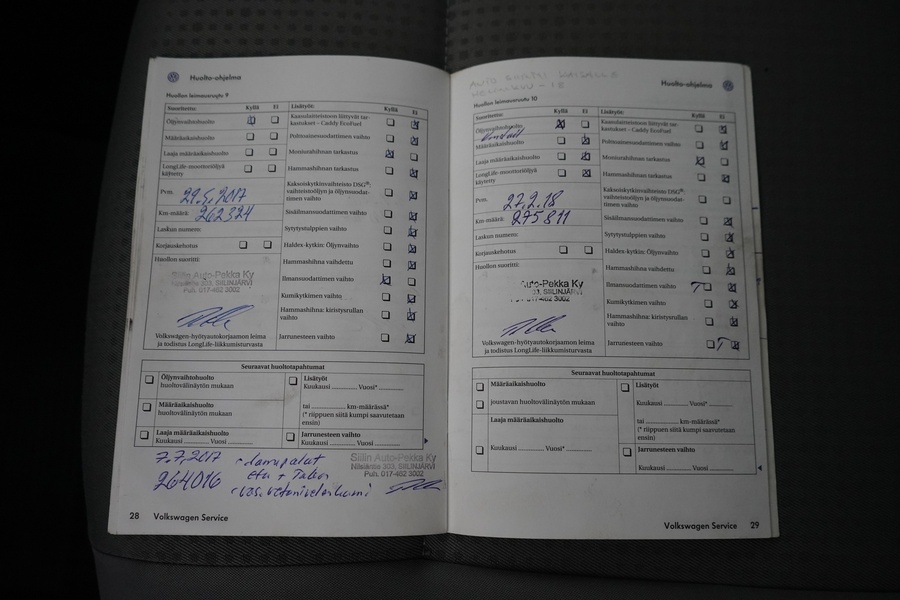 Huolto-ohjelma
Huollon leimausruutu 9
Suoritettu: Kyllä Ei
Öljynvaihtohuolto
Määräaikaishuolto
Laaja määräaikaishuolto
LongLife-moottoriöljyä
käytetty
Pvm. 29.5.2017
Km-määrä: 262324
Laskun numero:
Korjauskehotus
Huollon suoritti:
Siilin Auto-Pekka Ky
Nilsiäntie 303, SIILINJÄRVI
Puh. 017-462 3002
Volkswagen-hyötyautokorjaamon leima
ja todistus LongLife-liikkumisturvasta
Lisätyöt: Kyllä Ei
Kaasulaitteistoon liittyvät tar-
kastukset – Caddy EcoFuel
Polttoainesuodattimen vaihto
Moniurahihnan tarkastus
Hammashihnan tarkastus
Kaksoiskytkinvaihteisto DSG®:
vaihteistoöljyn ja öljynsuodat-
timen vaihto
Sisäilmansuodattimen vaihto
Sytytystulppien vaihto
Haldex-kytkin: Öljynvaihto
Hammashihna vaihdettu
Ilmansuodattimen vaihto
Kumikytkimen vaihto
Hammashihna: kiristysrullan
vaihto
Jarrunesteen vaihto
Seuraavat huoltotapahtumat
Öljynvaihtohuolto
huoltovälinäytön mukaan
Määräaikaishuolto
huoltovälinäytön mukaan
Laaja määräaikaishuolto
Kuukausi Vuosi
Lisätyöt
Kuukausi Vuosi*
tai km-määrässä*
(* riippuen siitä kumpi saavutetaan
ensin)
Jarrunesteen vaihto
Kuukausi Vuosi
7.7.2017
264016
- Jarrupalat
etu + Taka
Siilin Auto-Pekka Ky
Nilsiäntie 303, SIILINJÄRVI
Puh. 017-462 3002
28 Volkswagen Service
AUTO
- 18
Huolto-ohjelma
Huollon leimausruutu 10
Suoritettu: Kyllä Ei
Öljynvaihtohuolto
Määräaikaishuolto
Laaja määräaikaishuolto
LongLife-moottoriöljyä
käytetty
Pvm. 27.2.18
Km-määrä: 275811
Laskun numero:
Korjauskehotus
Huollon suoritti:
Auto-Pekka Ky
303, SIILINJÄRVI
017-462 3002
Volkswagen-hyötyautokorjaamon leima
ja todistus LongLife-liikkumisturvasta
Lisätyöt: Kyllä Ei
Kaasulaitteistoon liittyvät tar-
kastukset – Caddy EcoFuel
Polttoainesuodattimen vaihto
Moniurahihnan tarkastus
Hammashihnan tarkastus
Kaksoiskytkinvaihteisto DSG®:
vaihteistoöljyn ja öljynsuodat-
timen vaihto
Sisäilmansuodattimen vaihto
Sytytystulppien vaihto
Haldex-kytkin: Öljynvaihto
Hammashihna vaihdettu
Ilmansuodattimen vaihto
Kumikytkimen vaihto
Hammashihna: kiristysrullan
vaihto
Jarrunesteen vaihto
Seuraavat huoltotapahtumat
Määräaikaishuolto
joustavan huoltonäytön mukaan
Laaja määräaikaishuolto
Kuukausi Vuosi*
Lisätyöt
Kuukausi Vuosi*
tai km-määrässä*
(* riippuen siitä kumpi saavutetaan
ensin)
Jarrunesteen vaihto
Kuukausi Vuosi
Volkswagen Service 29